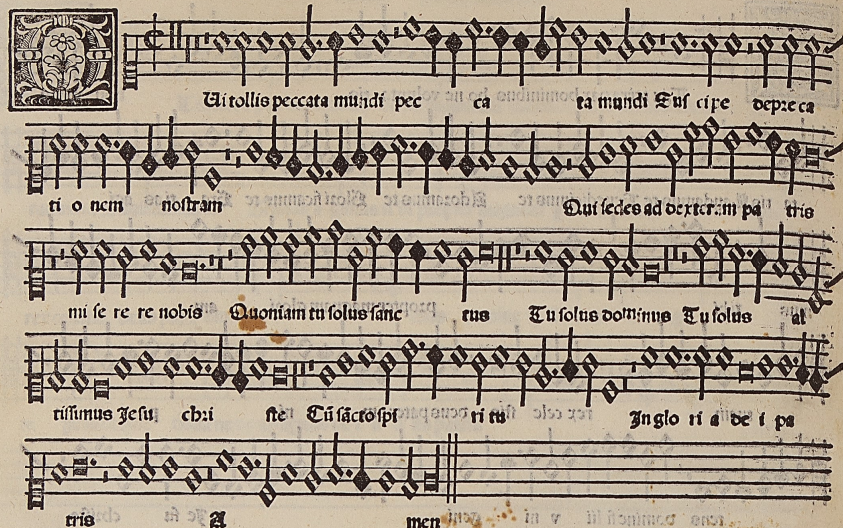 QUi tollis peccata mundi pec ca ta mundi Sus cipe depreca
ti o nem nostram Qui sedes ad dexteram pa tris
mi se re re nobis Quoniam tu solus sanc tus Tu solus dominus Tu solus al
tissimus Jesu chri ste Cũ sãcto spi ri tu In glo ri a de i pa
tris A men